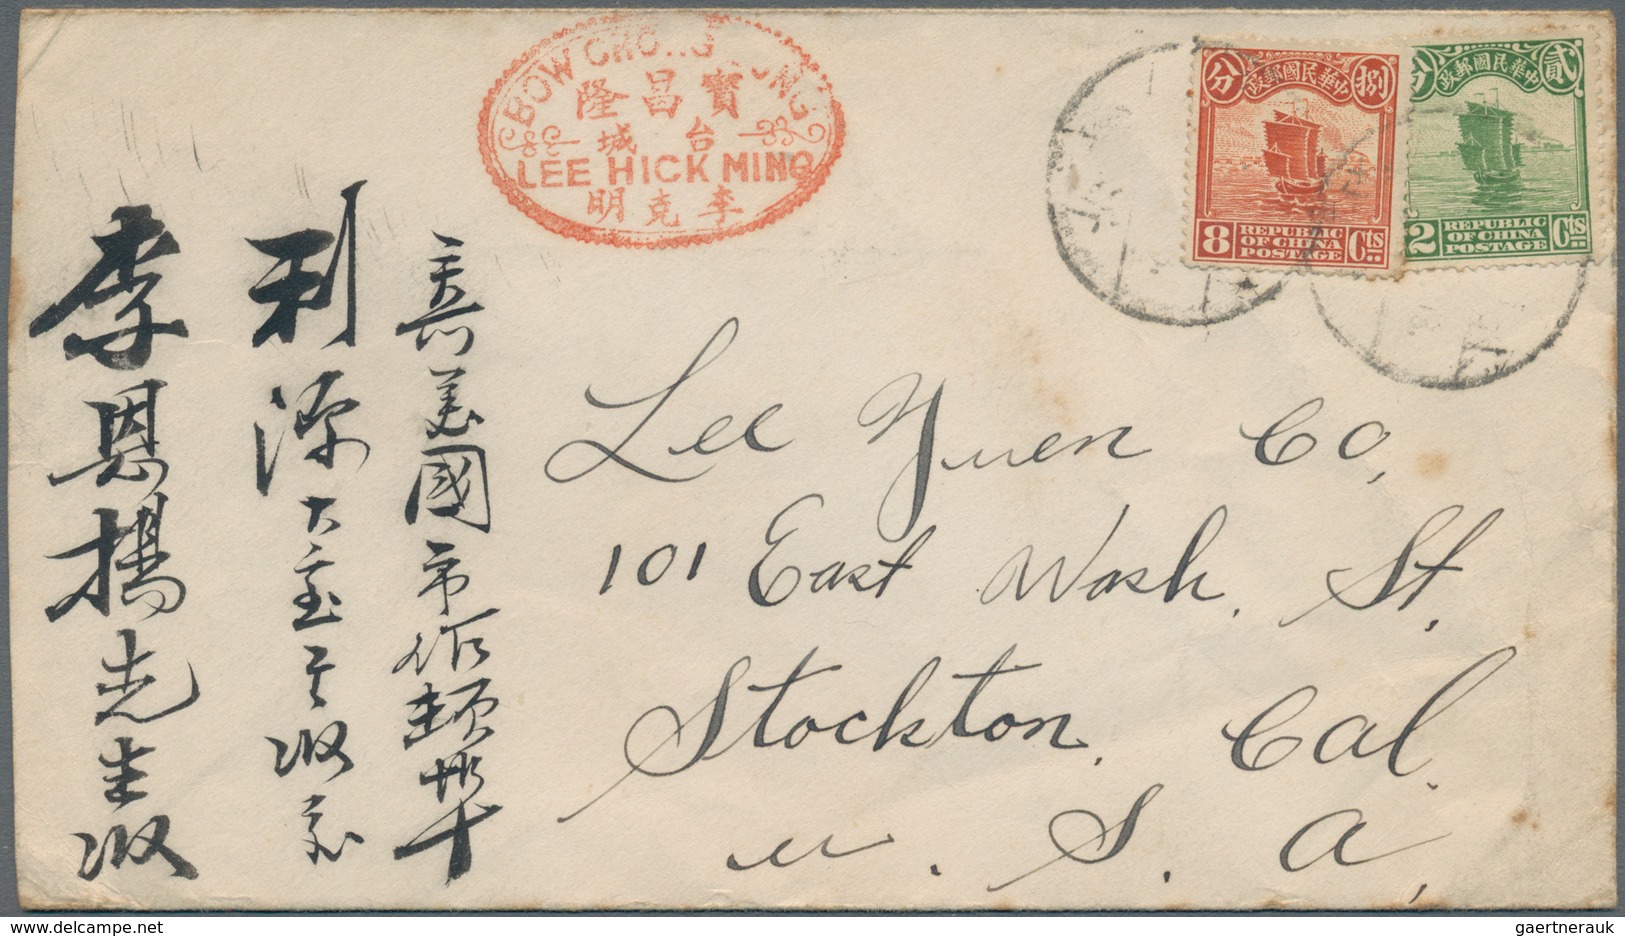 BOW CHONG
隆昌寶
城台
LEE HICK MING
明克李
分 政郵國民華中 捌
8 REPUBLIC OF CHINA POSTAGE Cts
分 政郵國民華中 貳
2 REPUBLIC OF CHINA POSTAGE Cts
美國市作頓埠
利源大寶號收
李恩揚先生收
Lee Yuen Co,
101 East Wash. St.
Stockton. Cal.
U. S. A,
gaertnerauk